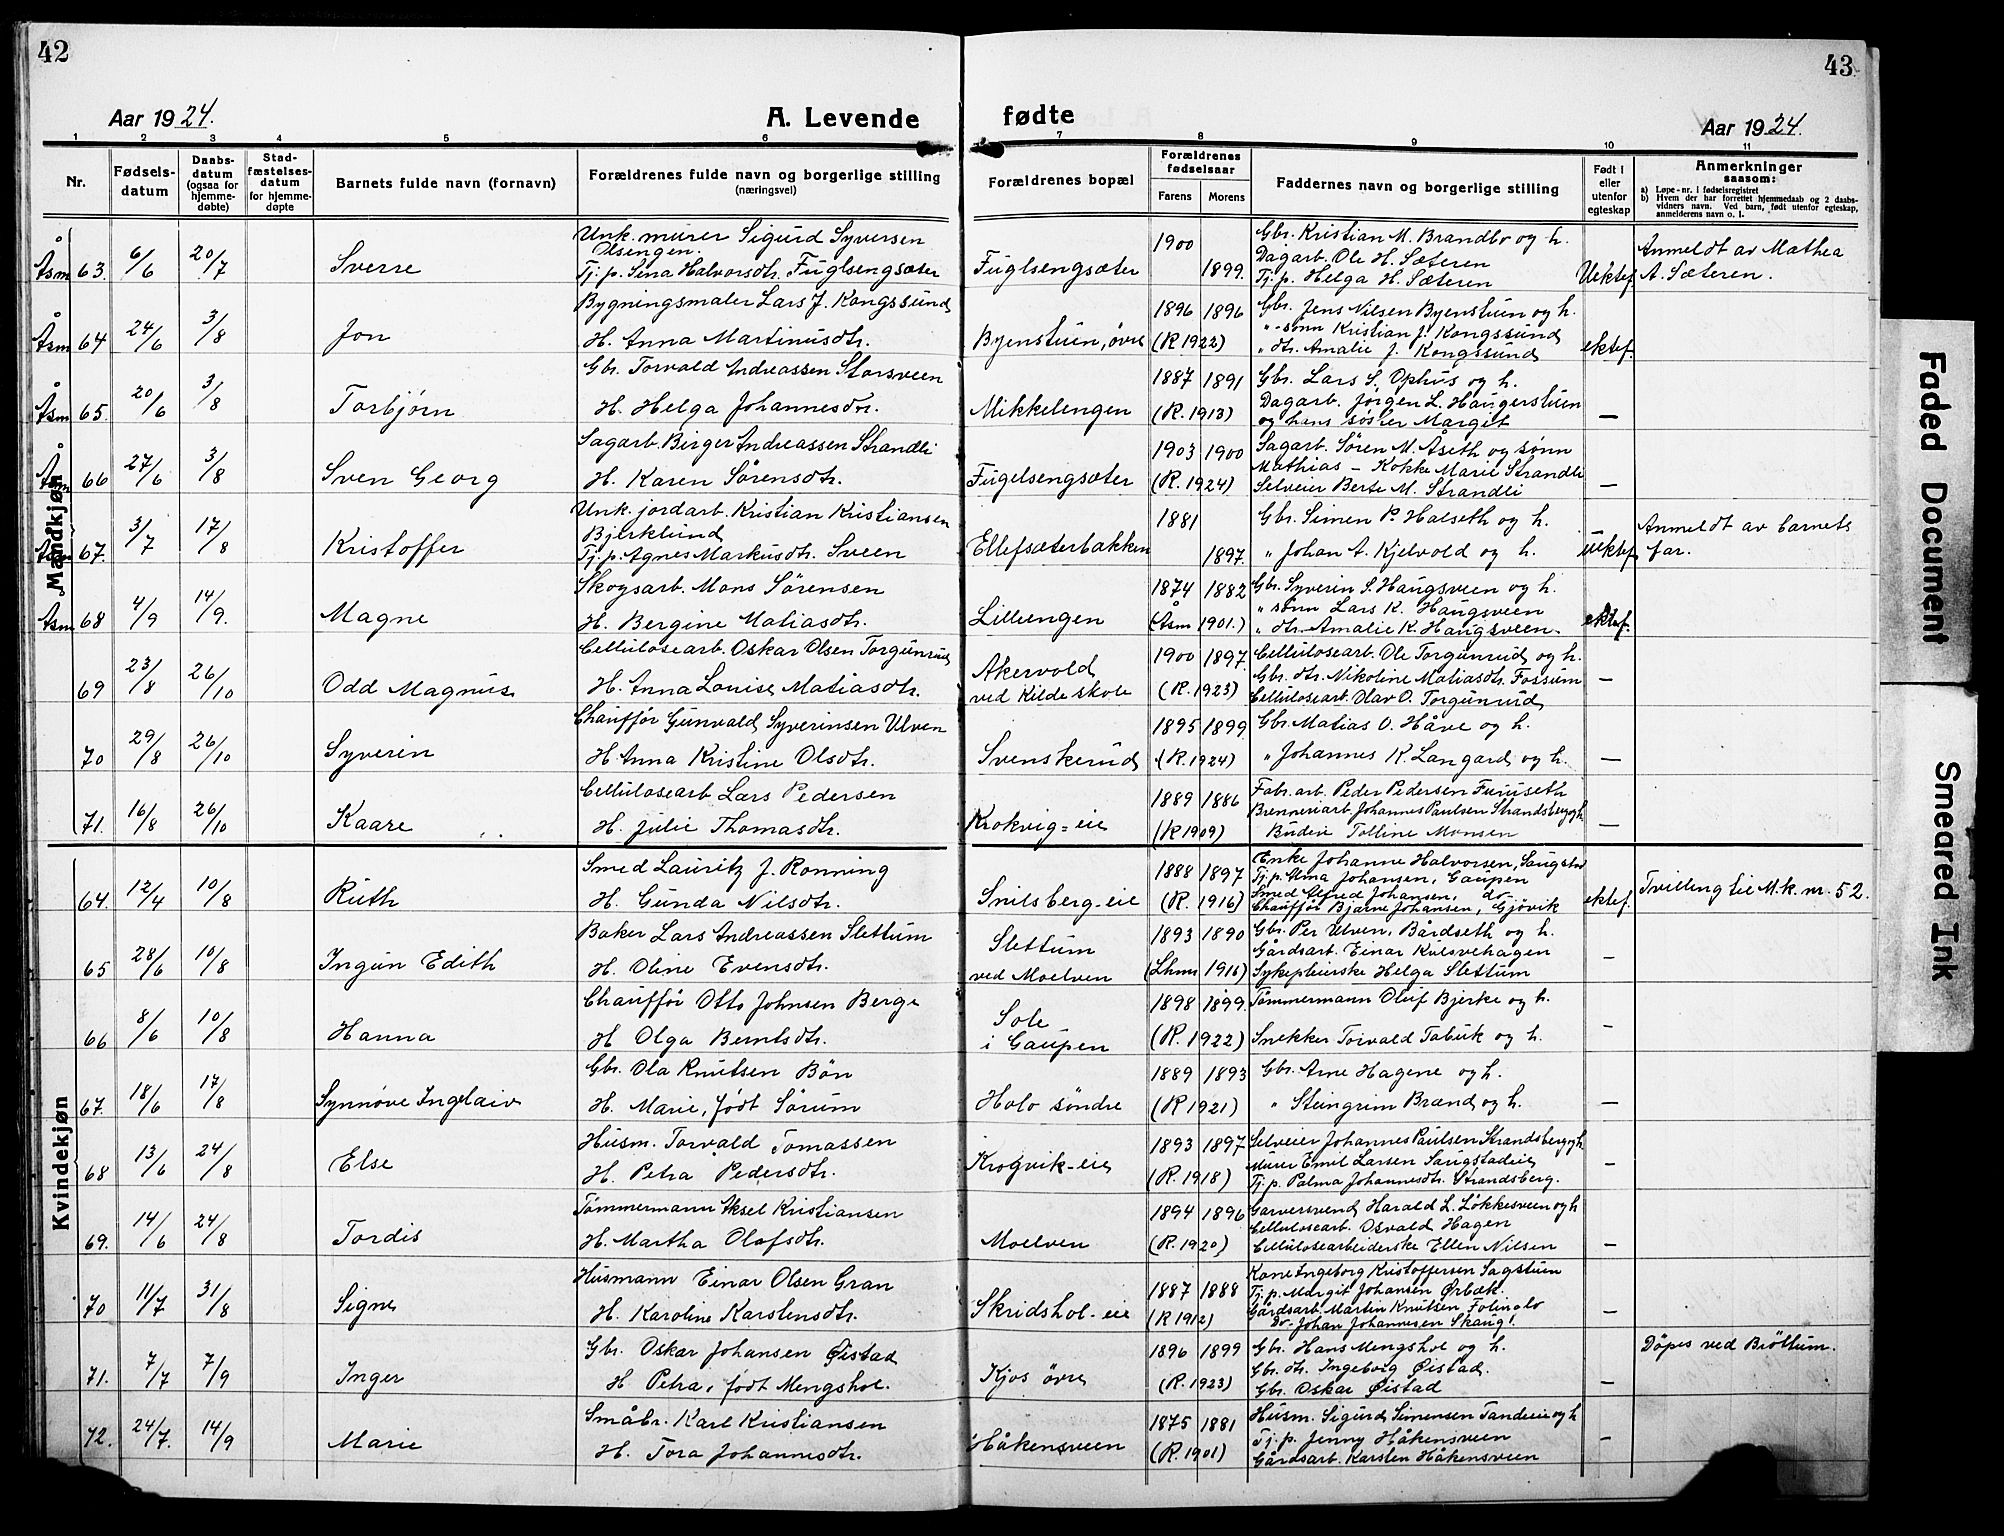 42
43
Aar 1924.
A. Levende
fødte
Aar 1924.
1 2 3 4 5 6 7 8 9 10 11
Nr.
Fødsels-
datum
Daabs-
datum
(ogsaa for
hjemme-
døbte)
Stad-
fæstelses-
datum
for hjemme-
døpte
Barnets fulde navn (fornavn)
Forældrenes fulde navn og borgerlige stilling
(næringsvei)
Forældrenes bopæl
Forældrenes
fødselsaar
Farens Morens
Faddernes navn og borgerlige stilling
Født i
eller
utenfor
egteskap
Anmerkninger
saasom:
a) Løpe-nr. i fødselsregistret
b) Hvem der har forrettet hjemmedaab og 2 daabs-
vidners navn. Ved barn, født utenfor egteskap,
anmelderens navn o. l.
Mandkjøn
Å
Åsm 63. 6/6 20/7 Sverre
Unk. murer Sigurd Syversen
Olsengen.
Tj. p. Sina Halvorsdtr. Fuglsengsæter
Fuglsengsæter
1900
1899.
Gbr. Kristian M. Brandbo og h.
Dagarb. Ole H. Sæteren
Tj. p. Helga H. Sæteren
Uektef.
Anmeldt av Mathea
A. Sæteren.
Åsm 64 24/6 3/8 Jon
Bygningsmaler Lars J. Kongssund
H. Anna Martinusdtr.
Byenstuen, øvre
1896 1896
(R. 1922)
Gbr. Jens Nilsen Byenstuen og h.
" sønn Kristian J. Kongssund
" dtr. Amalie J. Kongssund
ektef.
Åsm 65. 20/6 3/8 Torbjørn
Gbr. Torvald Andreassen Storsveen
H. Helga Johannesdtr.
Mikkelengen
1887 1891
(R. 1913)
Gbr. Lars S. Ophus og h.
Dagarb. Jørgen L. Haugerstuen
og hans søster Marget
—
Åsm 66 27/6 3/8 Sven Georg
Sagarb. Birger Andreassen Strandli
H. Karen Sørensdtr.
Fugelsengsæter
1903 1900
(R. 1924)
Sagarb. Søren M. Åseth og sønn
Mathias – Kokke Marie Strandli
Selveier Berte M. Strandli
—
Åsm 67. 3/7 17/8 Kristoffer
Unk. jordarb. Kristian Kristiansen
Bjerklund
Tj. p. Agnes Markusdtr. Sveen
Ellefsæterbakken
1881
1897.
Gbr. Simen P. Halseth og h.
" Johan A. Kjelvold og h.
uektef.
Anmeldt av barnets
far.
Åsm 68 4/9 14/9. Magne
Skogsarb. Mons Sørensen
H. Bergine Matiasdtr.
Lilleengen
1874 1882
(Åsm 1901.)
Gbr. Syverin S. Haugsveen og h.
" sønn Lars K. Haugsveen
" dtr. Amalie K. Haugsveen.
ektef.
69 23/8 26/10 Odd Magnus
Cellulosearb. Oskar Olsen Torgunrud
H. Anna Louise Matiasdtr.
Akervold
ved Kilde skole
1900 1897.
(R. 1923)
Cellulosearb. Ole Torgunrud og h.
Gbr. dtr. Nikoline Matiasdtr. Fossum
Cellulosearb. Olav O. Torgunrud
—
70 29/8 26/10 Syverin
Chauffør Gunvald Syverinsen Ulven
H. Anna Kristine Olsdtr.
Svenskerud
1895 1899
(R. 1924)
Gbr. Matias O. Håve og h.
" Johannes K. Langard og h.
—
71. 16/8 26/10 Kaare
Cellulosearb Lars Pedersen
H. Julie Thomasdtr.
Krokvig-eie
1889 1886
(R 1909)
Fabr. arb. Peder Pedersen Furuseth
Brenneriarb Johannes Paulsen Strandsberg og h.
Budeie Tolline Monsen
—
Kvindekjøn
64. 12/4 10/8 Ruth
Smed Lauritz J. Ronning
H. Gunda Nilsdtr.
Snilsberg-eie
1888 1897
(R. 1916)
Enke Johanne Halvorsen, Saugstad
Tj. p. Alma Johansen, Gaupen
Smed Alfred Johansen, do
Chauffør Bjarne Johansen, Gjøvik
ektef.
Tvilling til M.k. nr. 52.
65 28/6 10/8 Ingun Edith
Baker Lars Andreassen Slettum
H. Oline Evensdtr.
Slettum
ved Moelven
1893 1890
(Lhmr 1916)
Gbr. Per Ulven, Bårdseth og h.
Gårdsarb. Einar Kvilsvehagen
Sykepleierske Helga Slettum
–
66 8/6 10/8 Hanna
Chauffør Otto Johnsen Berge
H Olga Berntsdtr.
Sole
i Gaupen
1898 1899.
(R. 1922)
Tømmermann Oluf Bjerke og h.
Snekker Torvald Tabuk og h.
–
67. 18/6 17/8 Synnøve Ingelaiv
Gbr. Ola Knutsen Bön
H. Marie, født Sørum
Holo söndre
1889 1893
(R. 1921)
Gbr. Arne Hagene og h.
" Steingrim Brænd og h.
—
68 13/6 24/8 Else
Husm. Torvald Tomassen
H. Petra Pedersdtr.
Krogvik-eie
1893 1897
(R. 1918)
Selveier Johannes Paulsen Strandsberg og h.
Murer Emil Larsen Saugstadeie
Tj. p. Palma Johannesdtr. Strandsberg.
–
69. 14/6 24/8 Tordis
Tömmermann Aksel Kristiansen
H. Martha Olafsdtr.
Moelven
1894 1896
(R. 1920)
Garversvend Harald L. Løkkesveen og h
Cellulosearb. Osvald Hagen
Cellulosearbeiderske Ellen Nilsen
–
70 11/7 31/8 Signe
Husmann Einar Olsen Gran
H. Karoline Karstensdtr.
Skridshol-eie
1887 1888
(R 1912)
Kone Ingeborg Kristoffersen Sagstuen
Tj. p. Margit Johansen Ørbæk.
Gårdsarb. Martin Knutsen Folinolo
Do- Johan Johannesen Skaug.
—
71. 7/7 7/9 Inger
Gbr. Oskar Johansen Øistad
H Petra, født Mengshol.
Kjos øvre
1896 1899
(R. 1923)
Gbr. Hans Mengshol og h.
Gbr. dtr. Ingeborg Øistad.
Gbr. Oskar Øistad
—
Döpes ved Bröttum.
72. 24/7. 14/9 Marie
Småbr. Karl Kristiansen
H. Tora Johannesdtr.
Håkensveen
1875 1881
(R. 1901)
Husm. Sigurd Simensen Tandeie og h
Tj. p. Jenny Håkensveen
Gårdsarb. Karsten Håkensveen
–
Faded Document
Smeared Ink